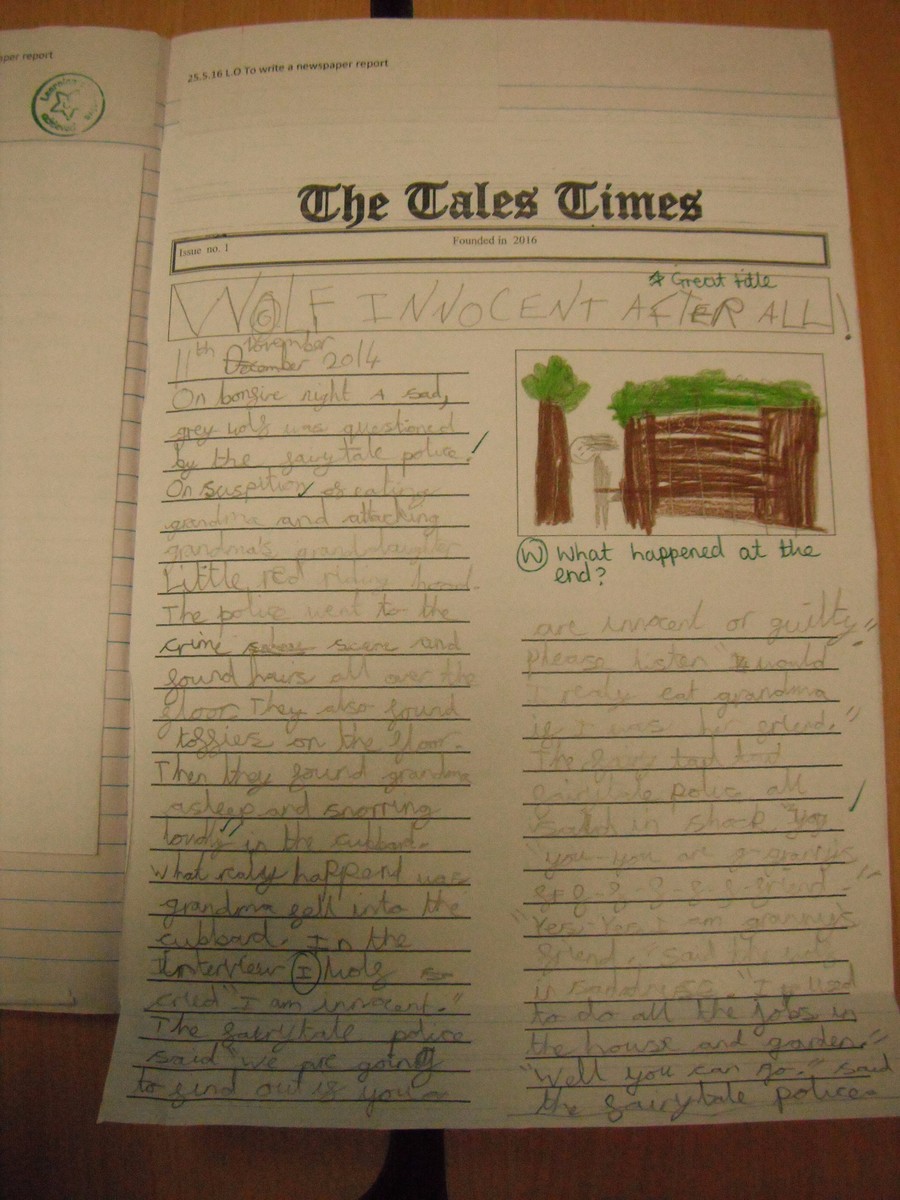 aper report
Learning
achieved
25.5.16 L.O To write a newspaper report
The Tales Times
Issue no. 1
Founded in 2016
* Great title
WOLF INNOCENT AFTER ALL!
11th November
December 2014
On bonfire night A sad,
grey wolf was questioned
by the fairytale police.
On suspition of eating
grandma and attacking
grandma's granddaughter
Little red riding hood.
The police went to the
crime scene and
found hairs all over the
floor. They also found
toffies on the floor.
Then they found grandma
asleep and snorring
lovdly in the cubbard.
What realy happend was
grandma fell into the
cubbard. In the
Interview I wolf
cried "I am innocent."
The fairytale police
said "we are going
to find out if you
W What happened at the
end?
are innocent or guilty"
please listen "would
I realy eat grandma
if I was her friend."
The fairy tail
fairytale polic all
said in shock "you
"you-you are g-granny's
f-f-f-f-f-friend."
"Yes, Yes I am granny's
friend," said the wolf
in sadness. "I used
to do all the jobs in
the house and garden."
"Well you can go." said
the fairytale police.